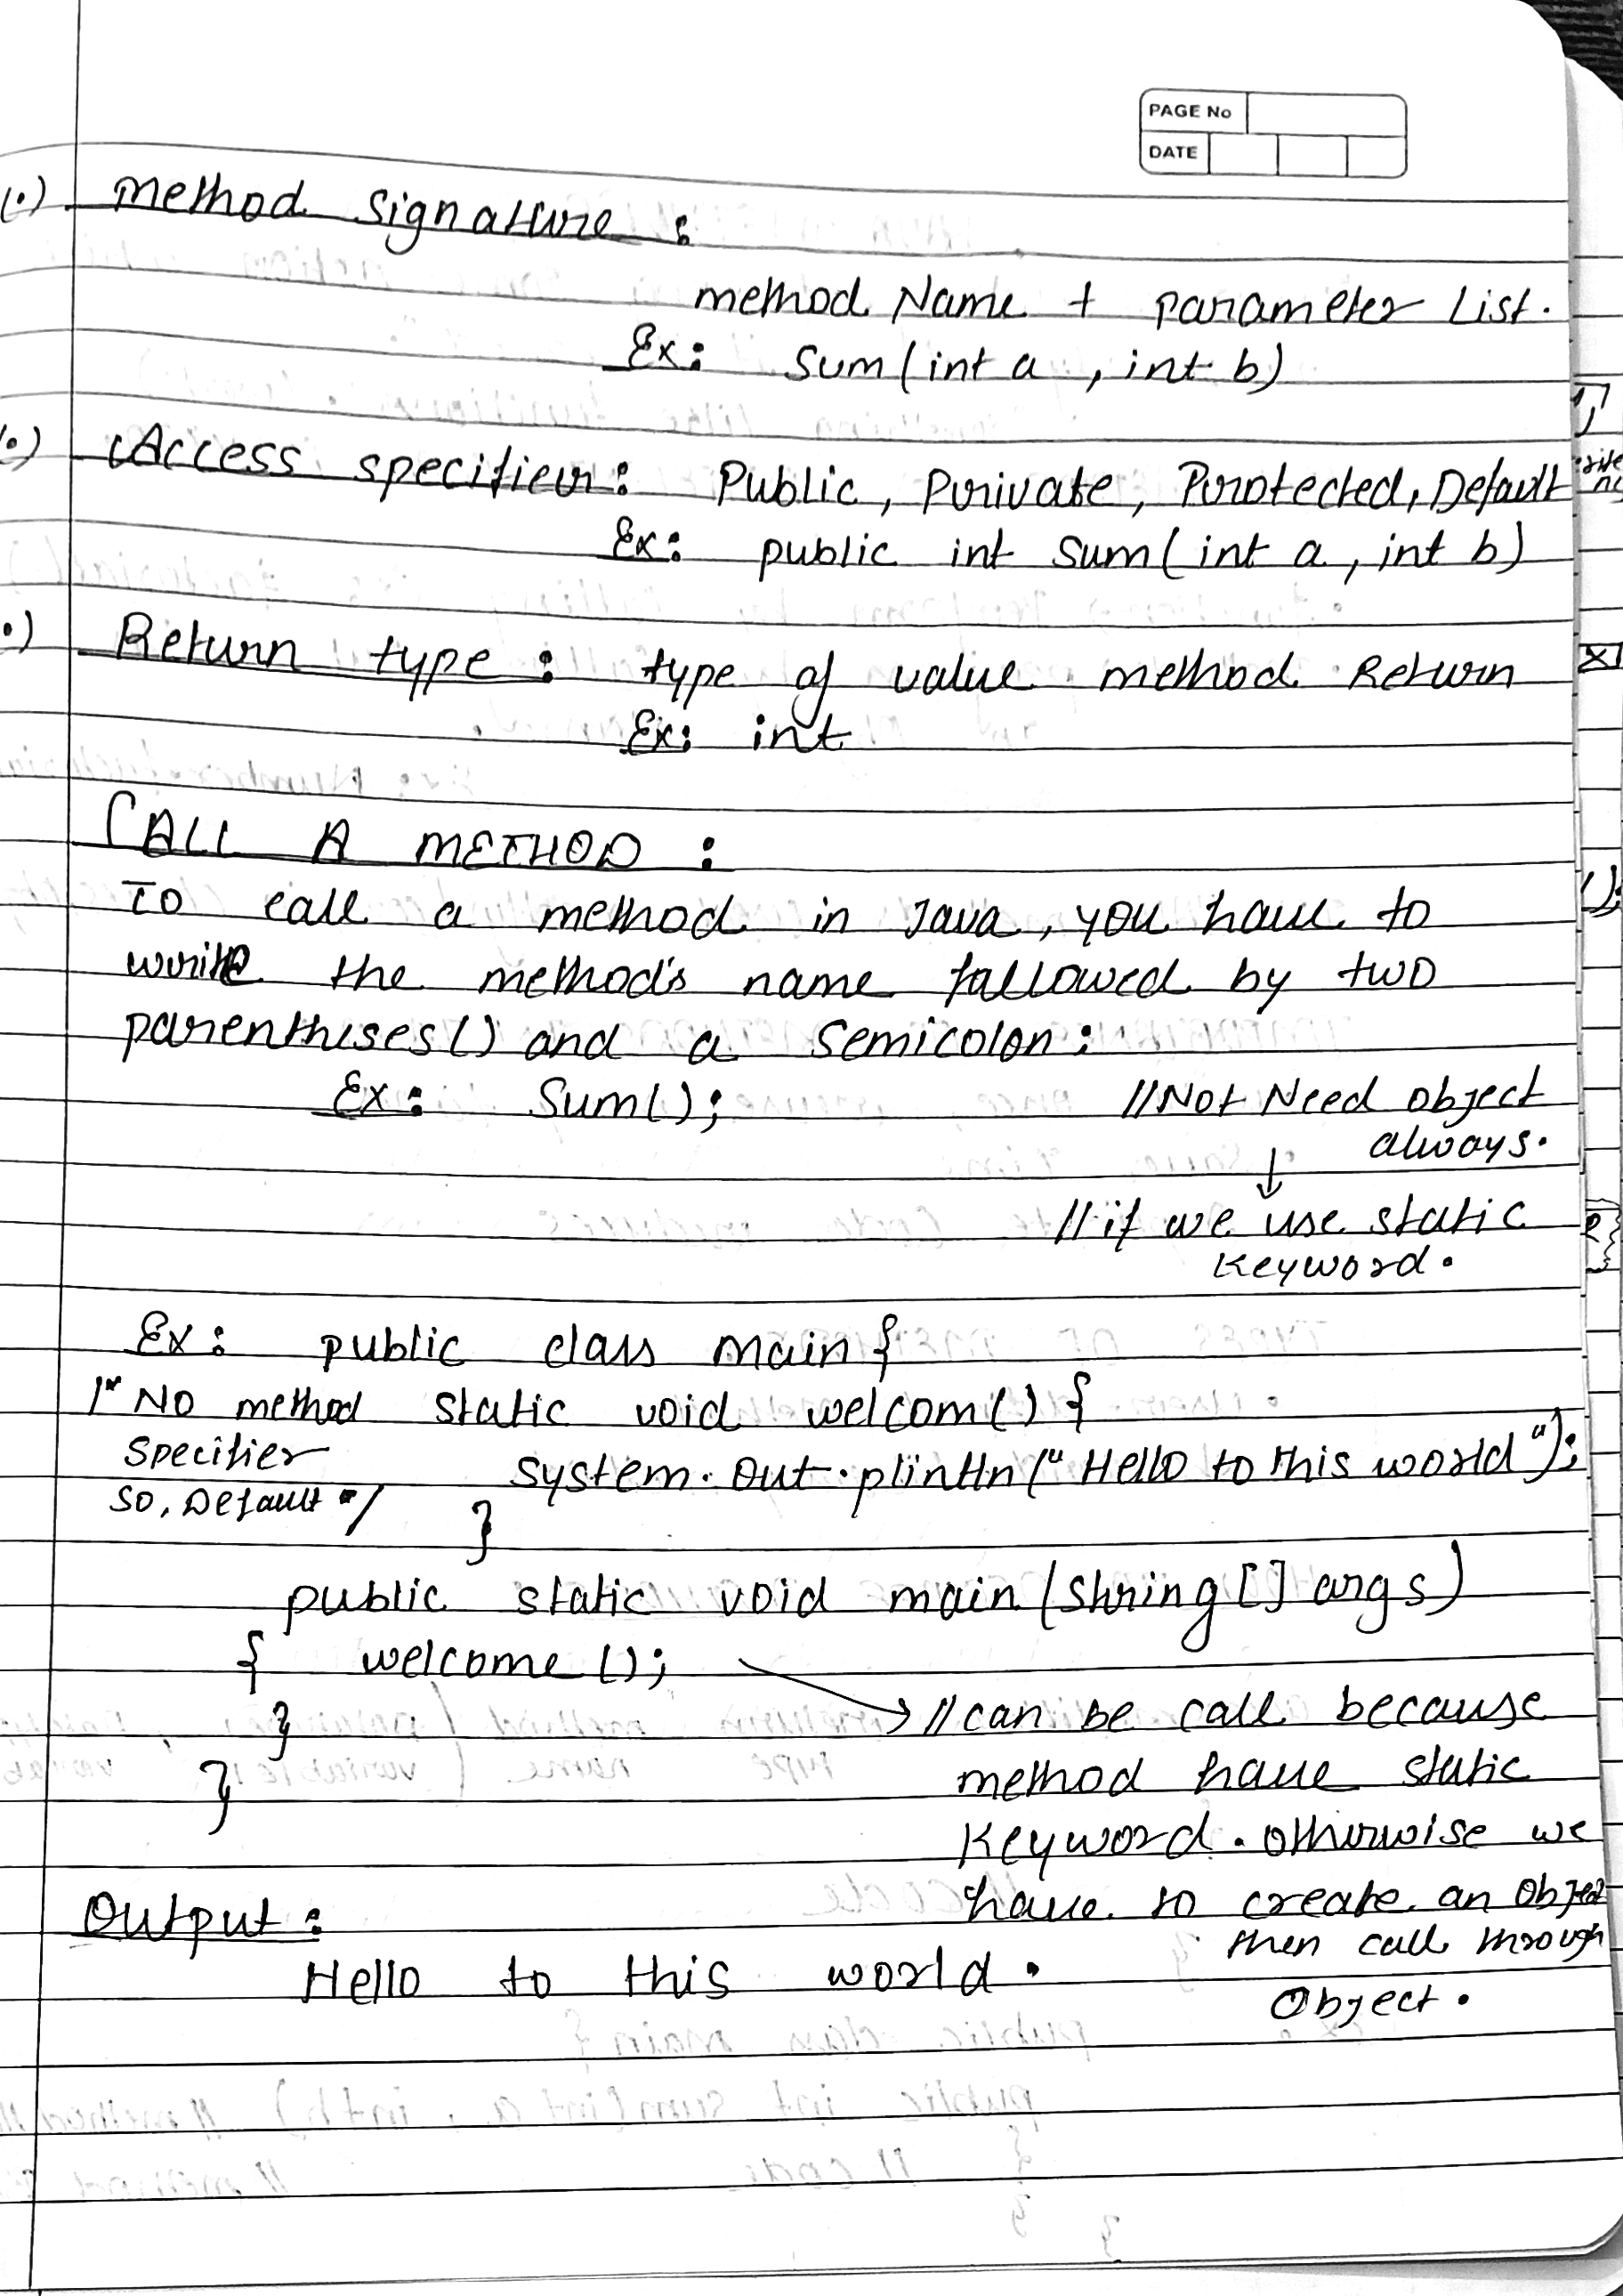 PAGE No
DATE
(•) Method Signature :
method Name + parameter List.
Ex: Sum(int a , int b)
(•) Access specifier: Public, Private, Protected, Default
Ex: public int Sum(int a, int b)
•) Return type : type of value method Return
Ex: int
CALL A METHOD :
To call a method in Java, you have to
write the method's name fallowed by two
parentheses() and a Semicolon:
Ex: Sum(); //Not Need object
always.
↓
//if we use static
Keyword.
Ex: public class main {
/* No method static void welcom() {
Specifier System.out.plintln("Hello to this world");
So, Default */ }
public static void main(String[] args)
{ welcome();
} → //can be call because
} method have static
Keyword. otherwise we
Output : have to create an Object
then call through
Hello to this world.
Object.